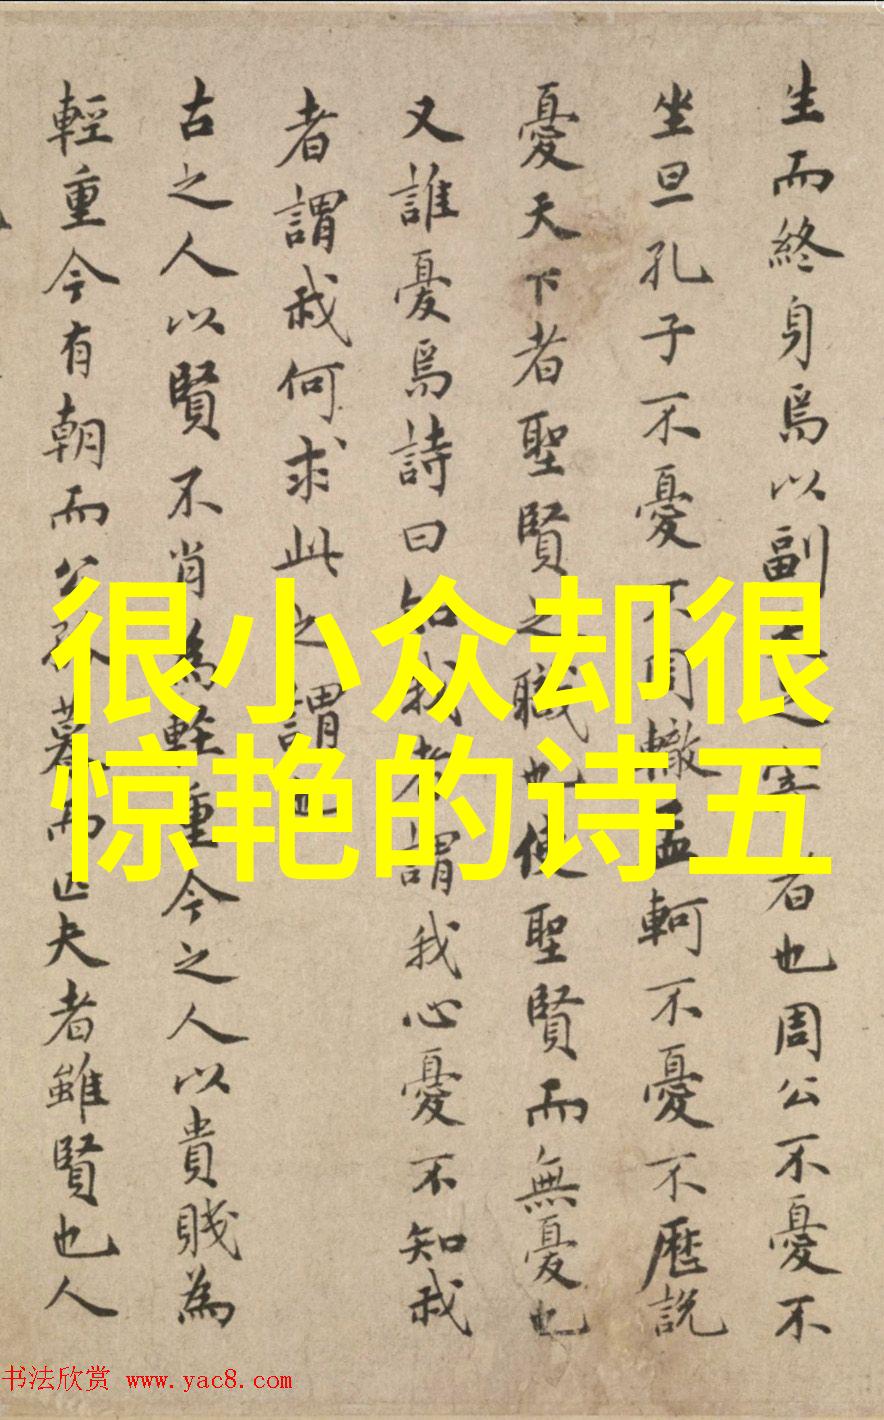 生而終身焉以副之者也周公不憂不
坐旦孔子不憂不周轍孟軻不憂不歷說
憂天下者聖賢之職也使聖賢而無憂也
又誰憂焉詩曰知我者謂我心憂不知我
者謂我何求此之謂也
古之人以賢不肖為輕重今之人以貴賤為
輕重今有朝而公孫暮而匹夫者雖賢也人
很小众却很
惊艳的诗五
书法欣赏 www.yac8.com